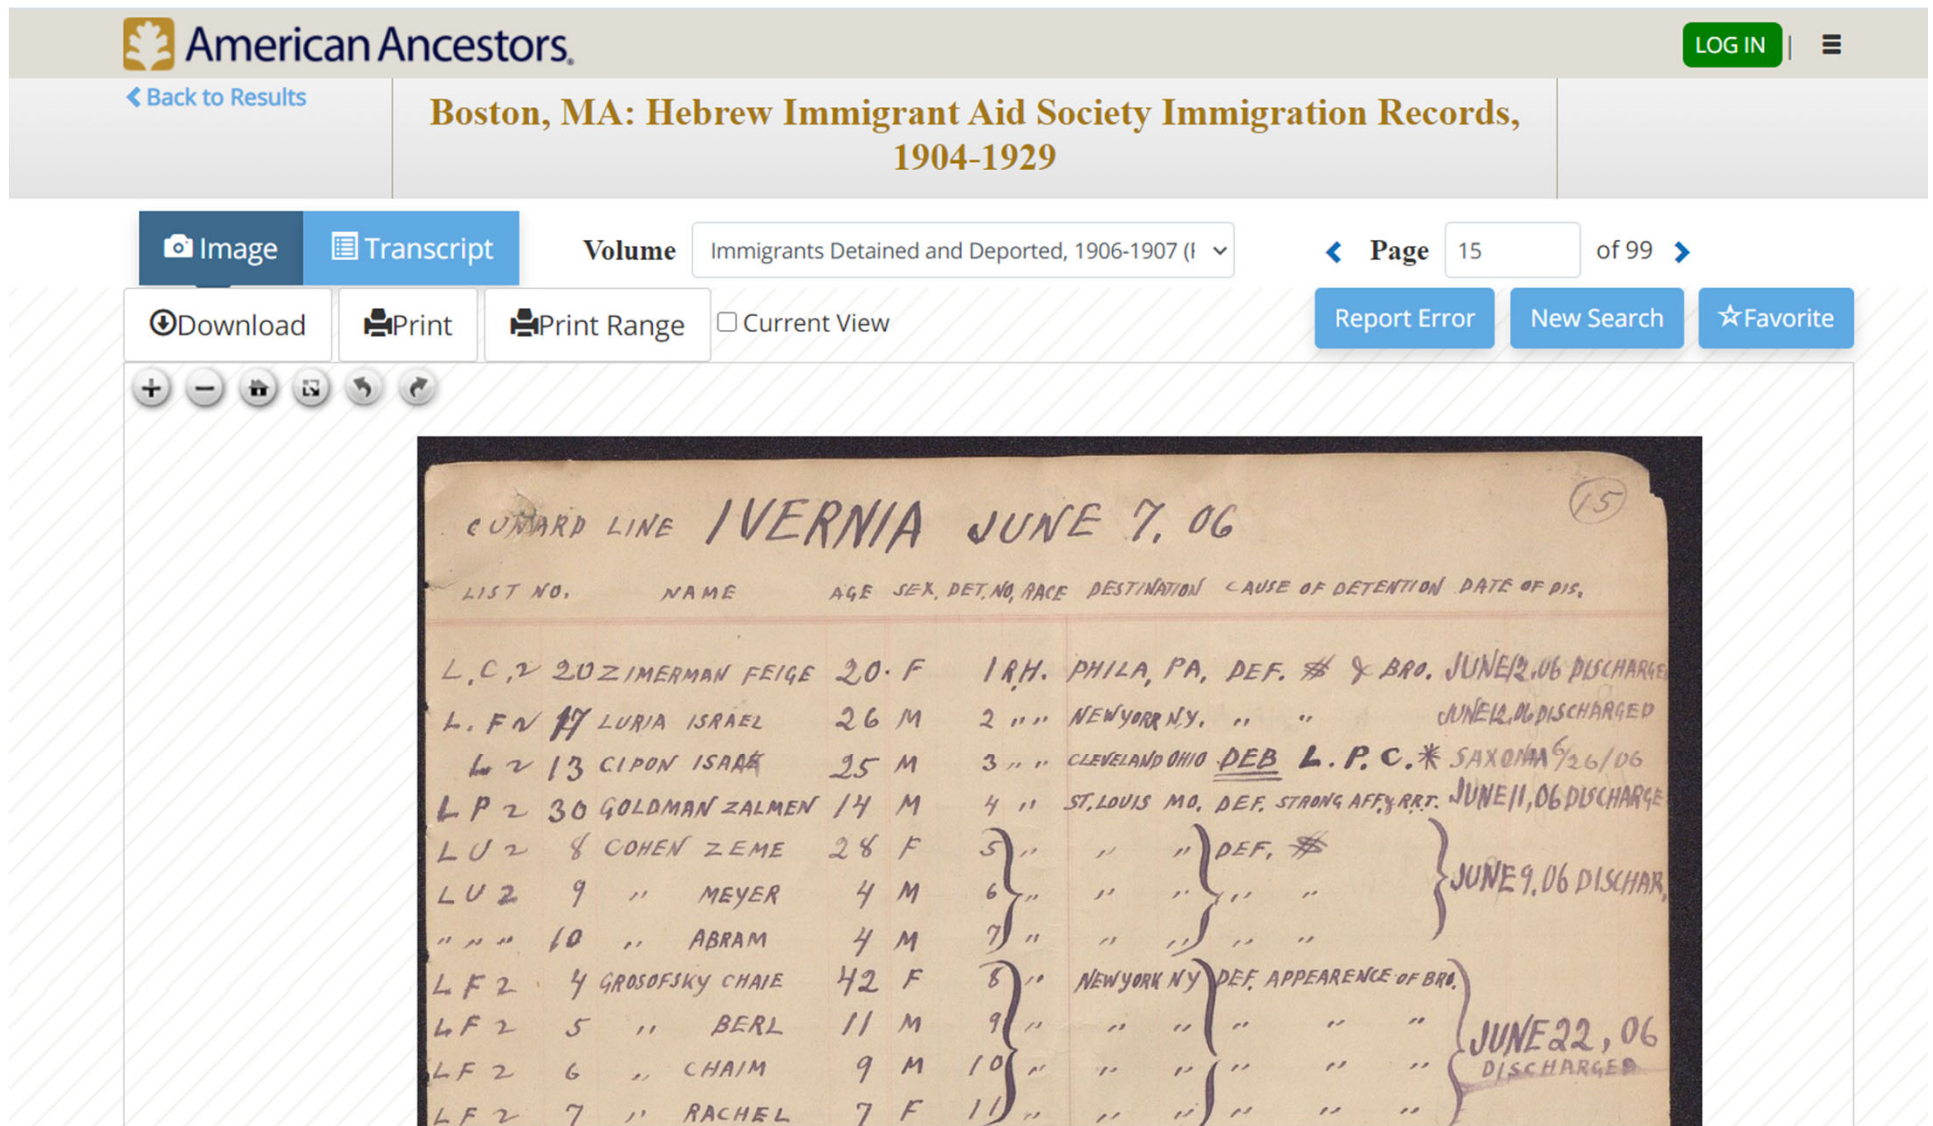 American Ancestors
LOG IN |
Back to Results
Boston, MA: Hebrew Immigrant Aid Society Immigration Records,
1904-1929
Image Transcript Volume Immigrants Detained and Deported, 1906-1907 ( Page 15 of 99
Download Print Print Range Current View Report Error New Search Favorite
15
CUNARD LINE IVERNIA JUNE 7. 06
LIST NO. NAME AGE SEX. DET. NO. RACE DESTINATION CAUSE OF DETENTION DATE OF DIS.
L.C,2 20 ZIMERMAN FEIGE 20. F 1 R.H. PHILA, PA, DEF. $ & BRO. JUNE 12.06 DISCHARGE
L. F 2 17 LURIA ISRAEL 26 M 2 " " NEW YORK N.Y. " " JUNE 12.06 DISCHARGED
L 2 13 CIPON ISAAK 25 M 3 " " CLEVELAND OHIO DEB L. P. C. * SAXONIA 6/26/06
L P 2 30 GOLDMAN ZALMEN 14 M 4 " ST. LOUIS MO. DEF. STRONG AFF. & RRT. JUNE 11, 06 DISCHARGE
L U 2 8 COHEN ZEME 28 F 5 " " " DEF. $
L U 2 9 " MEYER 4 M 6 " " " " " JUNE 9.06 DISCHAR.
" " " 10 " ABRAM 4 M 7 " " " " "
L F 2 4 GROSOFSKY CHAIE 42 F 8 " NEW YORK NY DEF. APPEARENCE OF BRO.
L F 2 5 " BERL 11 M 9 " " " " " " JUNE 22, 06
L F 2 6 " CHAIM 9 M 10 " " " " " " DISCHARGED
L F 2 7 " RACHEL 7 F 11 " " " " " "